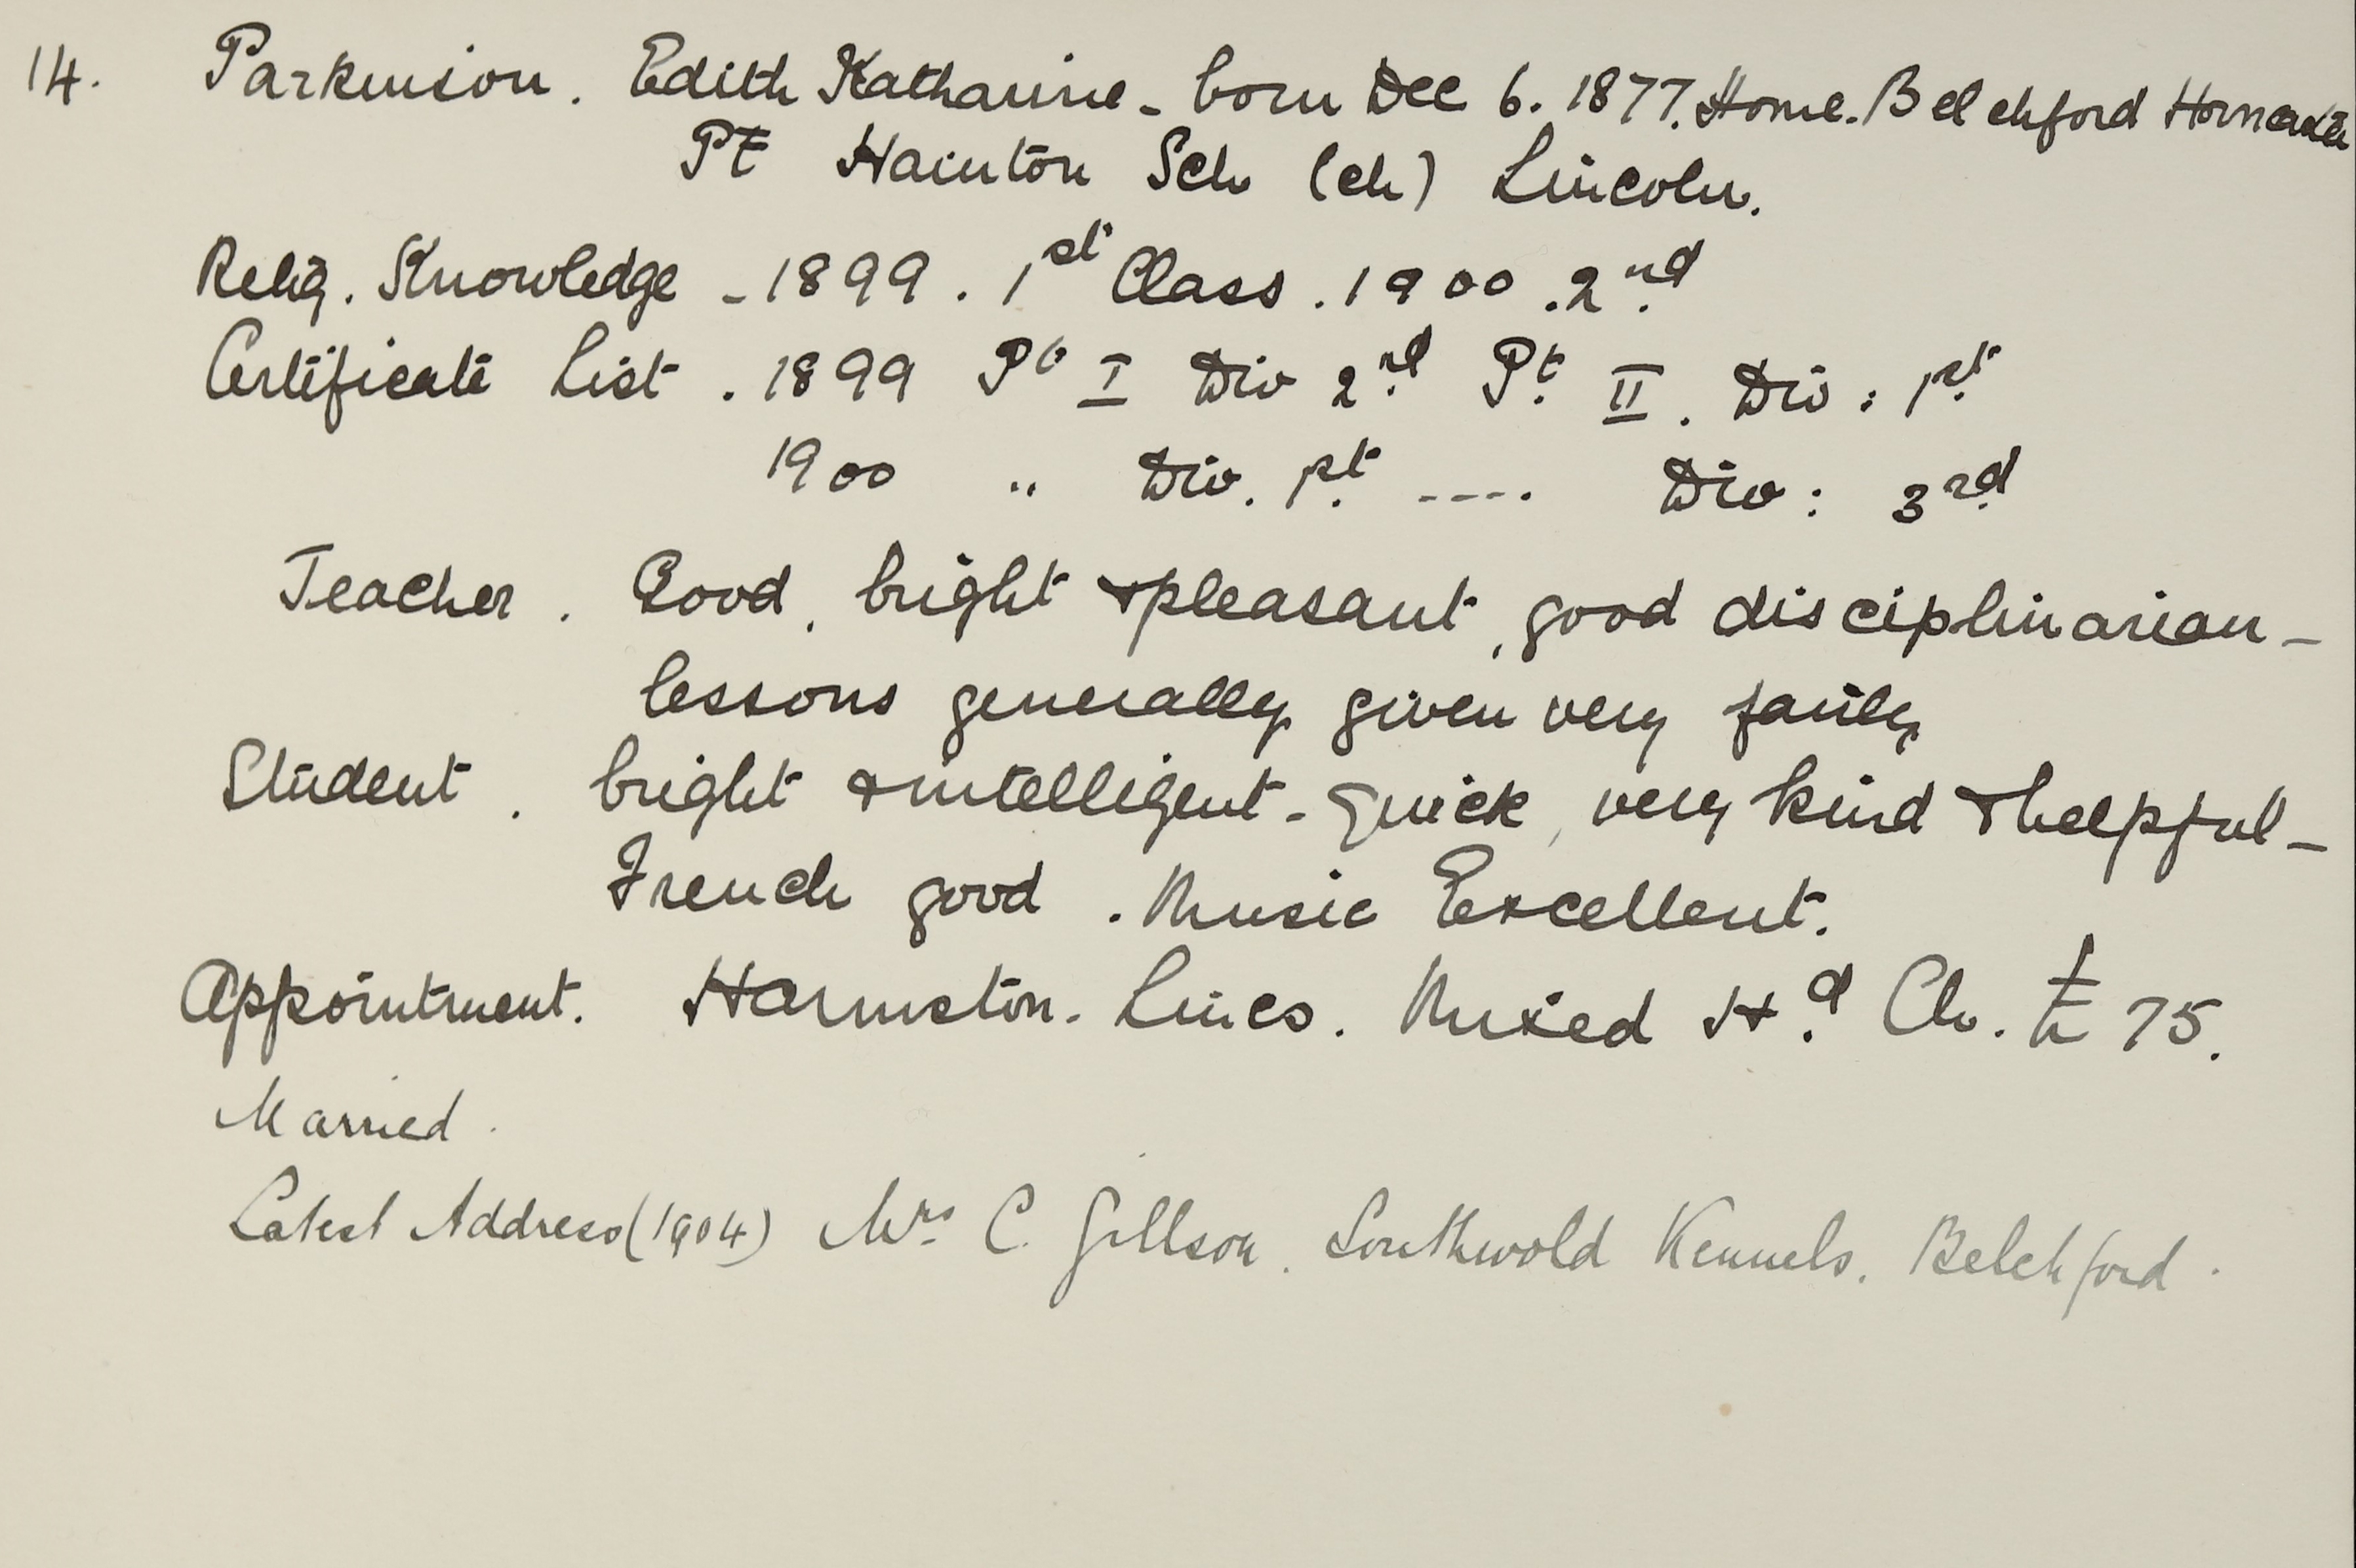 14. Parkinson. Edith Katharine - born Dec 6. 1877. Home. Belchford Horncastle
PT Hainton Sch (ch) Lincoln.
Relig. Knowledge - 1899. 1st Class. 1900. 2nd
Certificate List. 1899 Pt I Div 2nd Pt II. Div: 1st
1900 " Div. 1st ---- Div: 3rd
Teacher. Good, bright & pleasant, good disciplinarian -
lessons generally given very fairly
Student. bright & intelligent - quick, very kind & helpful -
French good. Music Excellent.
Appointment. Harmston. Lincs. Mixed Hd Ch. £75.
Married.
Latest Address (1904) Mrs C. Gillson. Southwold Kennels. Belchford.